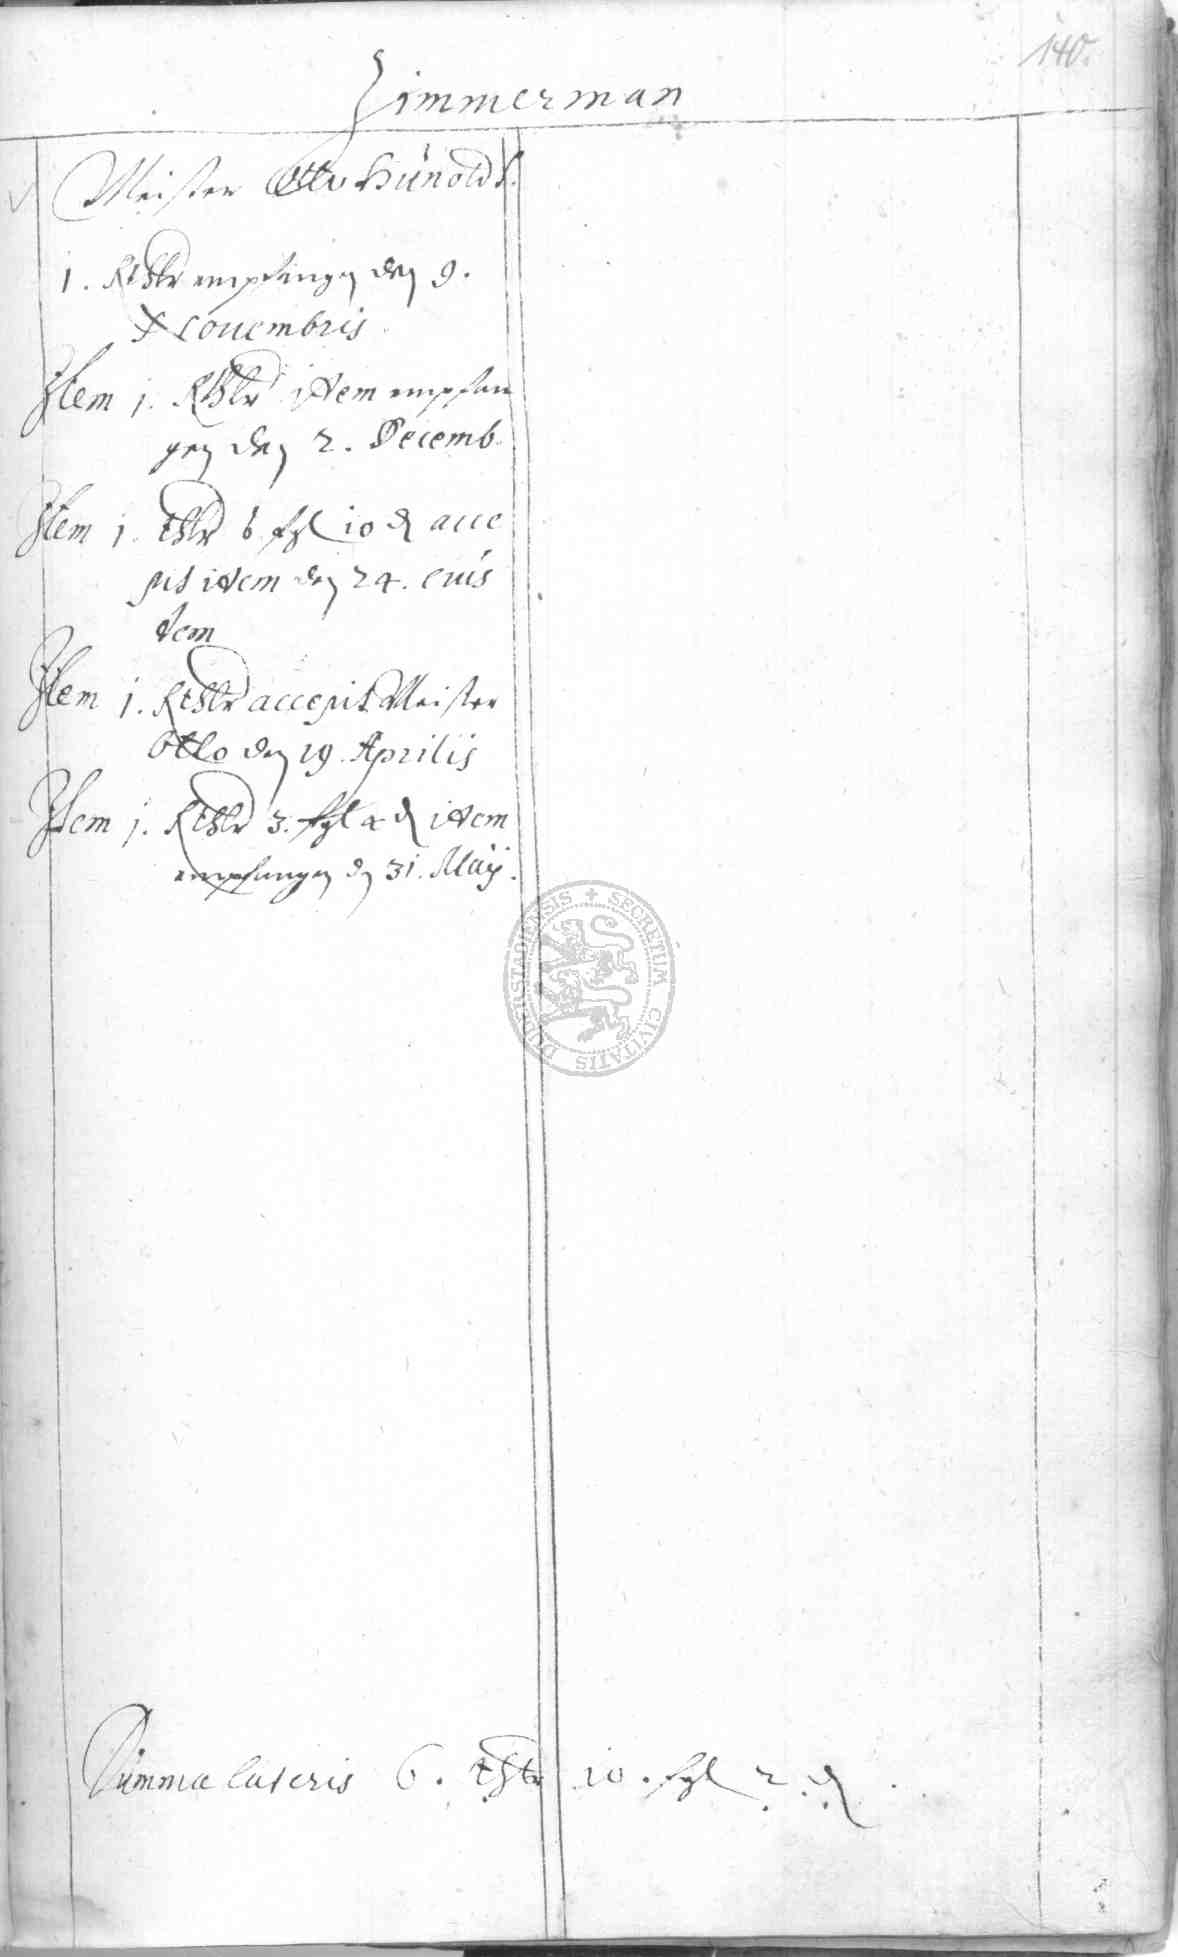 140.
Zimmerman
Meister Otto Hünoldt.
1. Rthlr empfangen den 9.
Nouembris.
Item 1. Rthlr idem empfan
gen den 2. Decemb.
Item 1. thlr 6 ßgl 10 ₰ acce
pit idem den 24. eius
dem
Item 1. Rthlr accepit Meister
Otto den 19 Aprilis
Item 1. Rthlr 3. ßgl 4 ₰ idem
empfangen den 31. Maÿ.
SECRETUM CIVITATIS DUDERSTADIENSIS
Summa lateris 6. thlr 10. ßgl 2 ₰